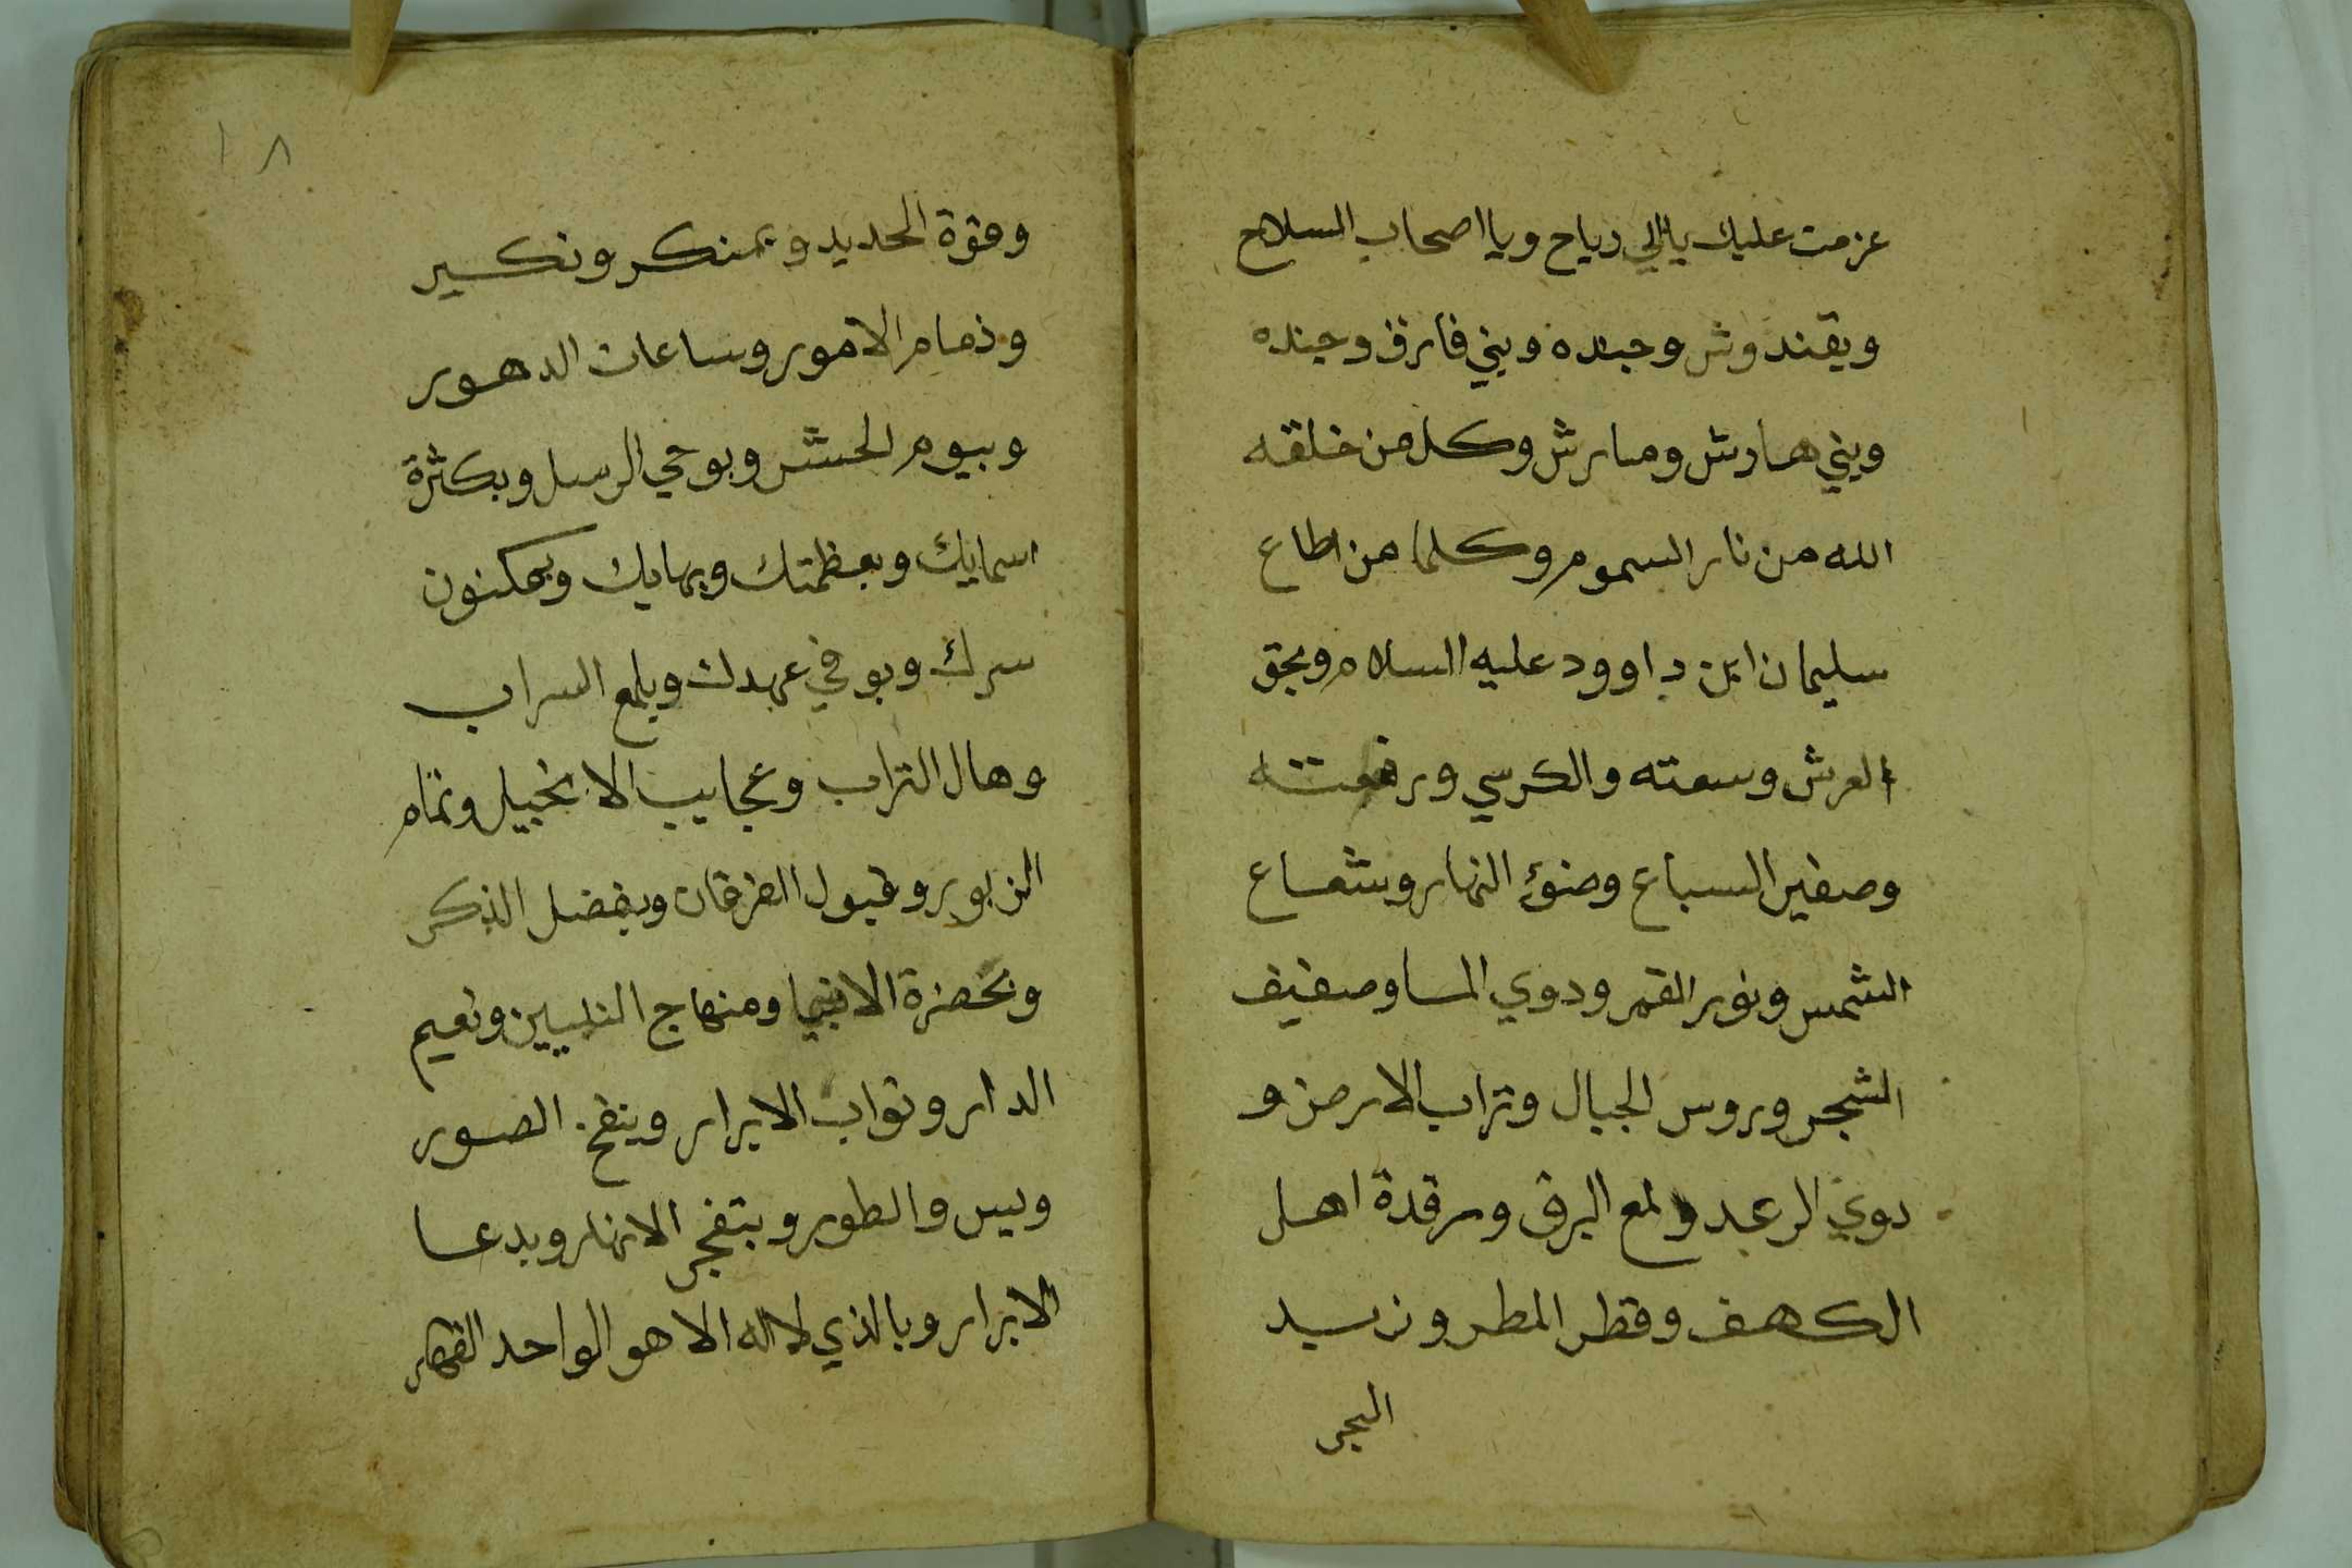 عزمت عليك يالالي رياح ويا اصحاب السلاح
وبقندوش وجنده وبني فارق وجنده
وبني هارش ومارش وكل من خلقه
الله من نار السموم وكلما من اطاع
سليمان ابن داوود عليه السلام وبحق
العرش وسعته والكرسي ورفعته
وصفير السباع وضوء النهار وشعاع
الشمس ونور القمر ودوي الما وصفيف
الشجر وروس الجبال وتراب الارض و
دوي الرعد ولمع البرق ومرقدة اهل
الكهف وقطر المطر وزبد
البحر
١٨
وقوة الحديد وبمنكر ونكير
وزمام الامور وساعات الدهور
وبيوم الحشر وبوحي الرسل وبكثرة
اسمايك وبعظمتك وبهايك وبمكنون
سرك وبوفي عهدك وبلمع السراب
وهال التراب وعجايب الانجيل وتمام
الزبور وقبول الفرقان وبفضل الذكر
وبحضرة الانبيا ومنهاج النبيين ونعيم
الدار وثواب الابرار وبنفخ الصور
وبيس والطور وبتفجر الانهار وبدعا
الابرار وبالذي لا اله الا هو الواحد القهار